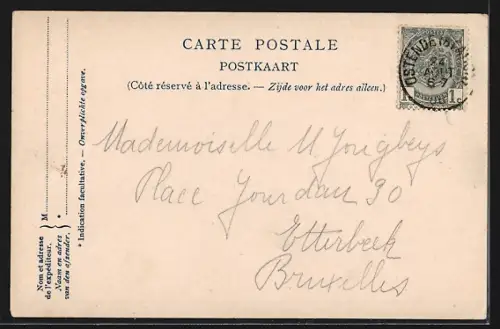 CARTE POSTALE
POSTKAART
(Côté réservé à l'adresse. — Zijde voor het adres alleen.)
OSTENDE
22
AOUT
1
1
Mademoiselle M Jongbeys
Place Jourdan 30
Etterbeek
Bruxelles
Nom et adresse
de l'expéditeur.
Naam en adres
van den afzender.
M
*
* Indication facultative. — Onverplichte opgave.